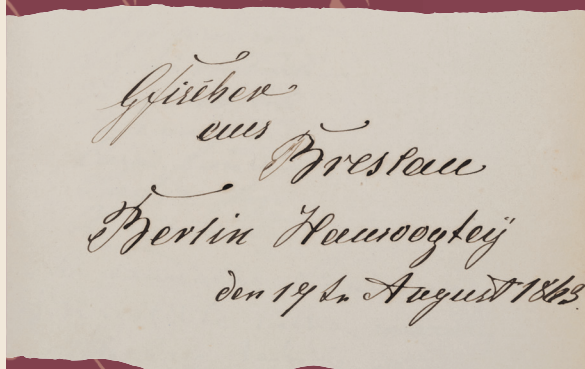 GFischer
aus
Breslau
Berlin Hausvogtey
den 17tn August 1863.